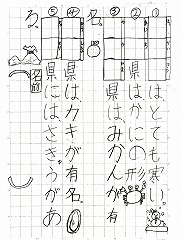 ①はとても寒い。
②県はかにの形
③県はみかんが有
名。
④県はカキが有名。
⑤県にはさきゅうがあ
る、
名前